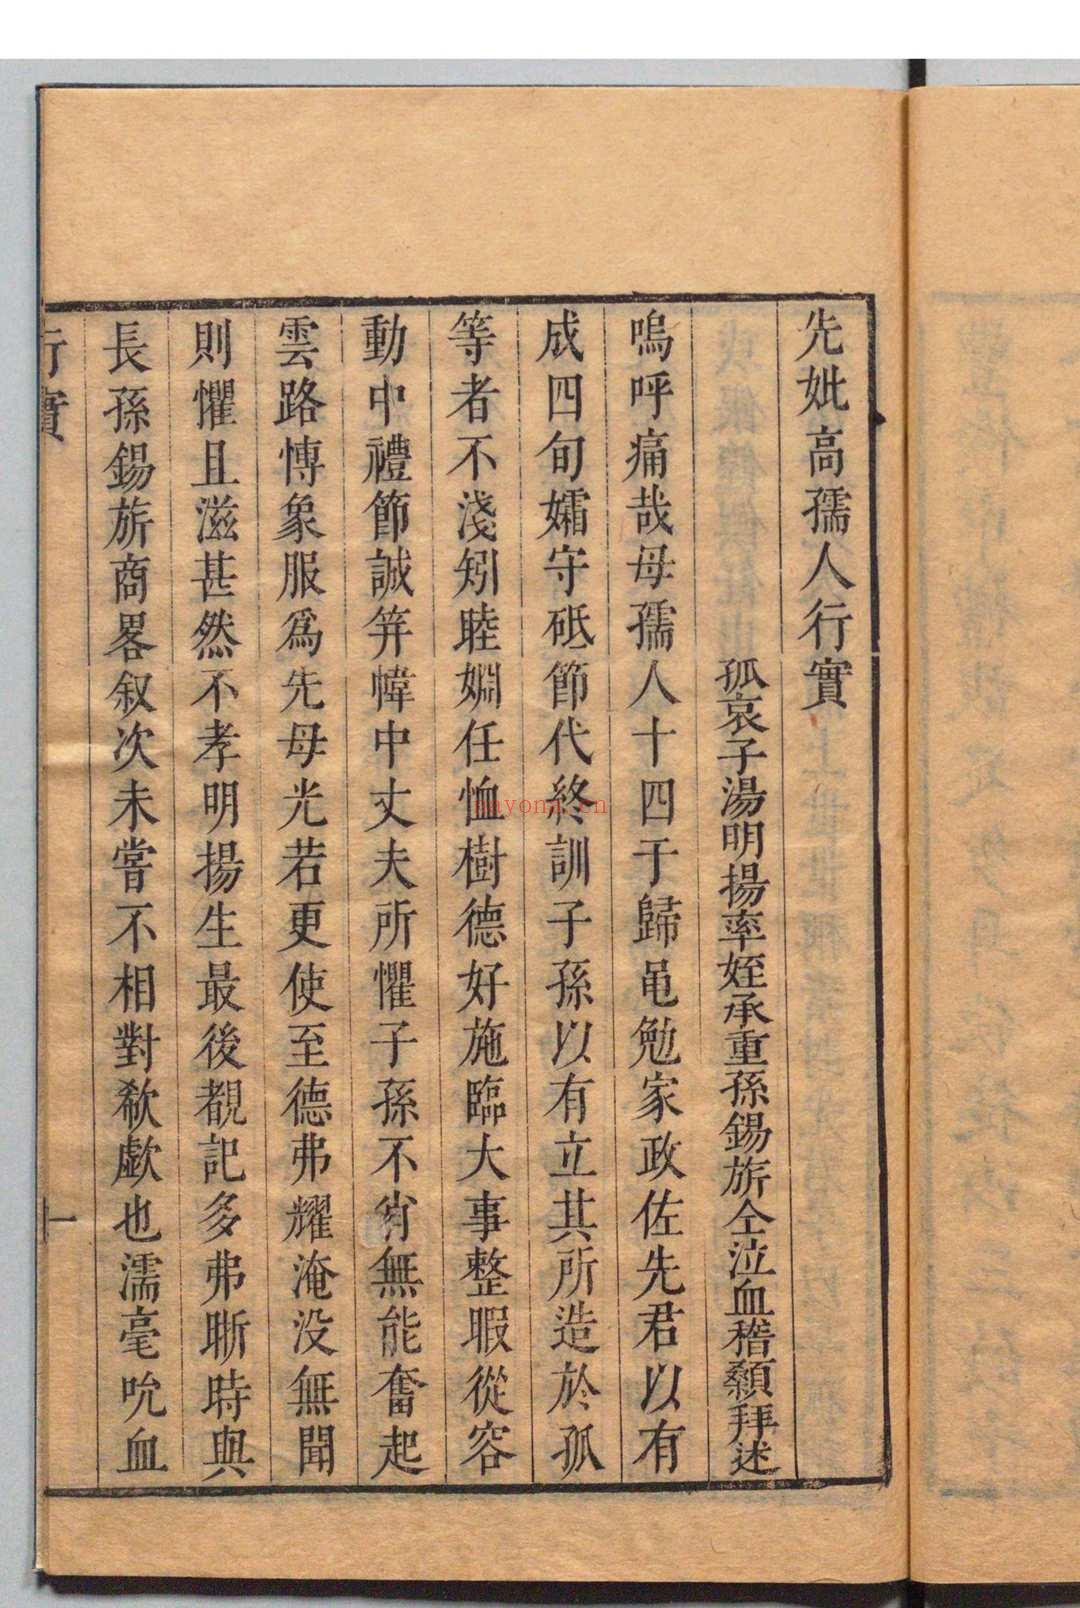 先妣高孺人行實
孤哀子湯明揚率姪承重孫錫旂仝泣血稽顙拜述
嗚呼痛哉母孺人十四于歸黽勉家政佐先君以有
成四旬孀守砥節代終訓子孫以有立其所造於孤
等者不淺矧睦婣任恤樹德好施臨大事整暇從容
動中禮節誠笄幃中丈夫所懼子孫不肖無能奮起
雲路慱象服爲先母光若更使至德弗耀淹没無聞
則懼且滋甚然不孝明揚生最後覩記多弗晣時與
長孫錫旂商畧叙次未嘗不相對欷歔也濡毫吮血
行實
一